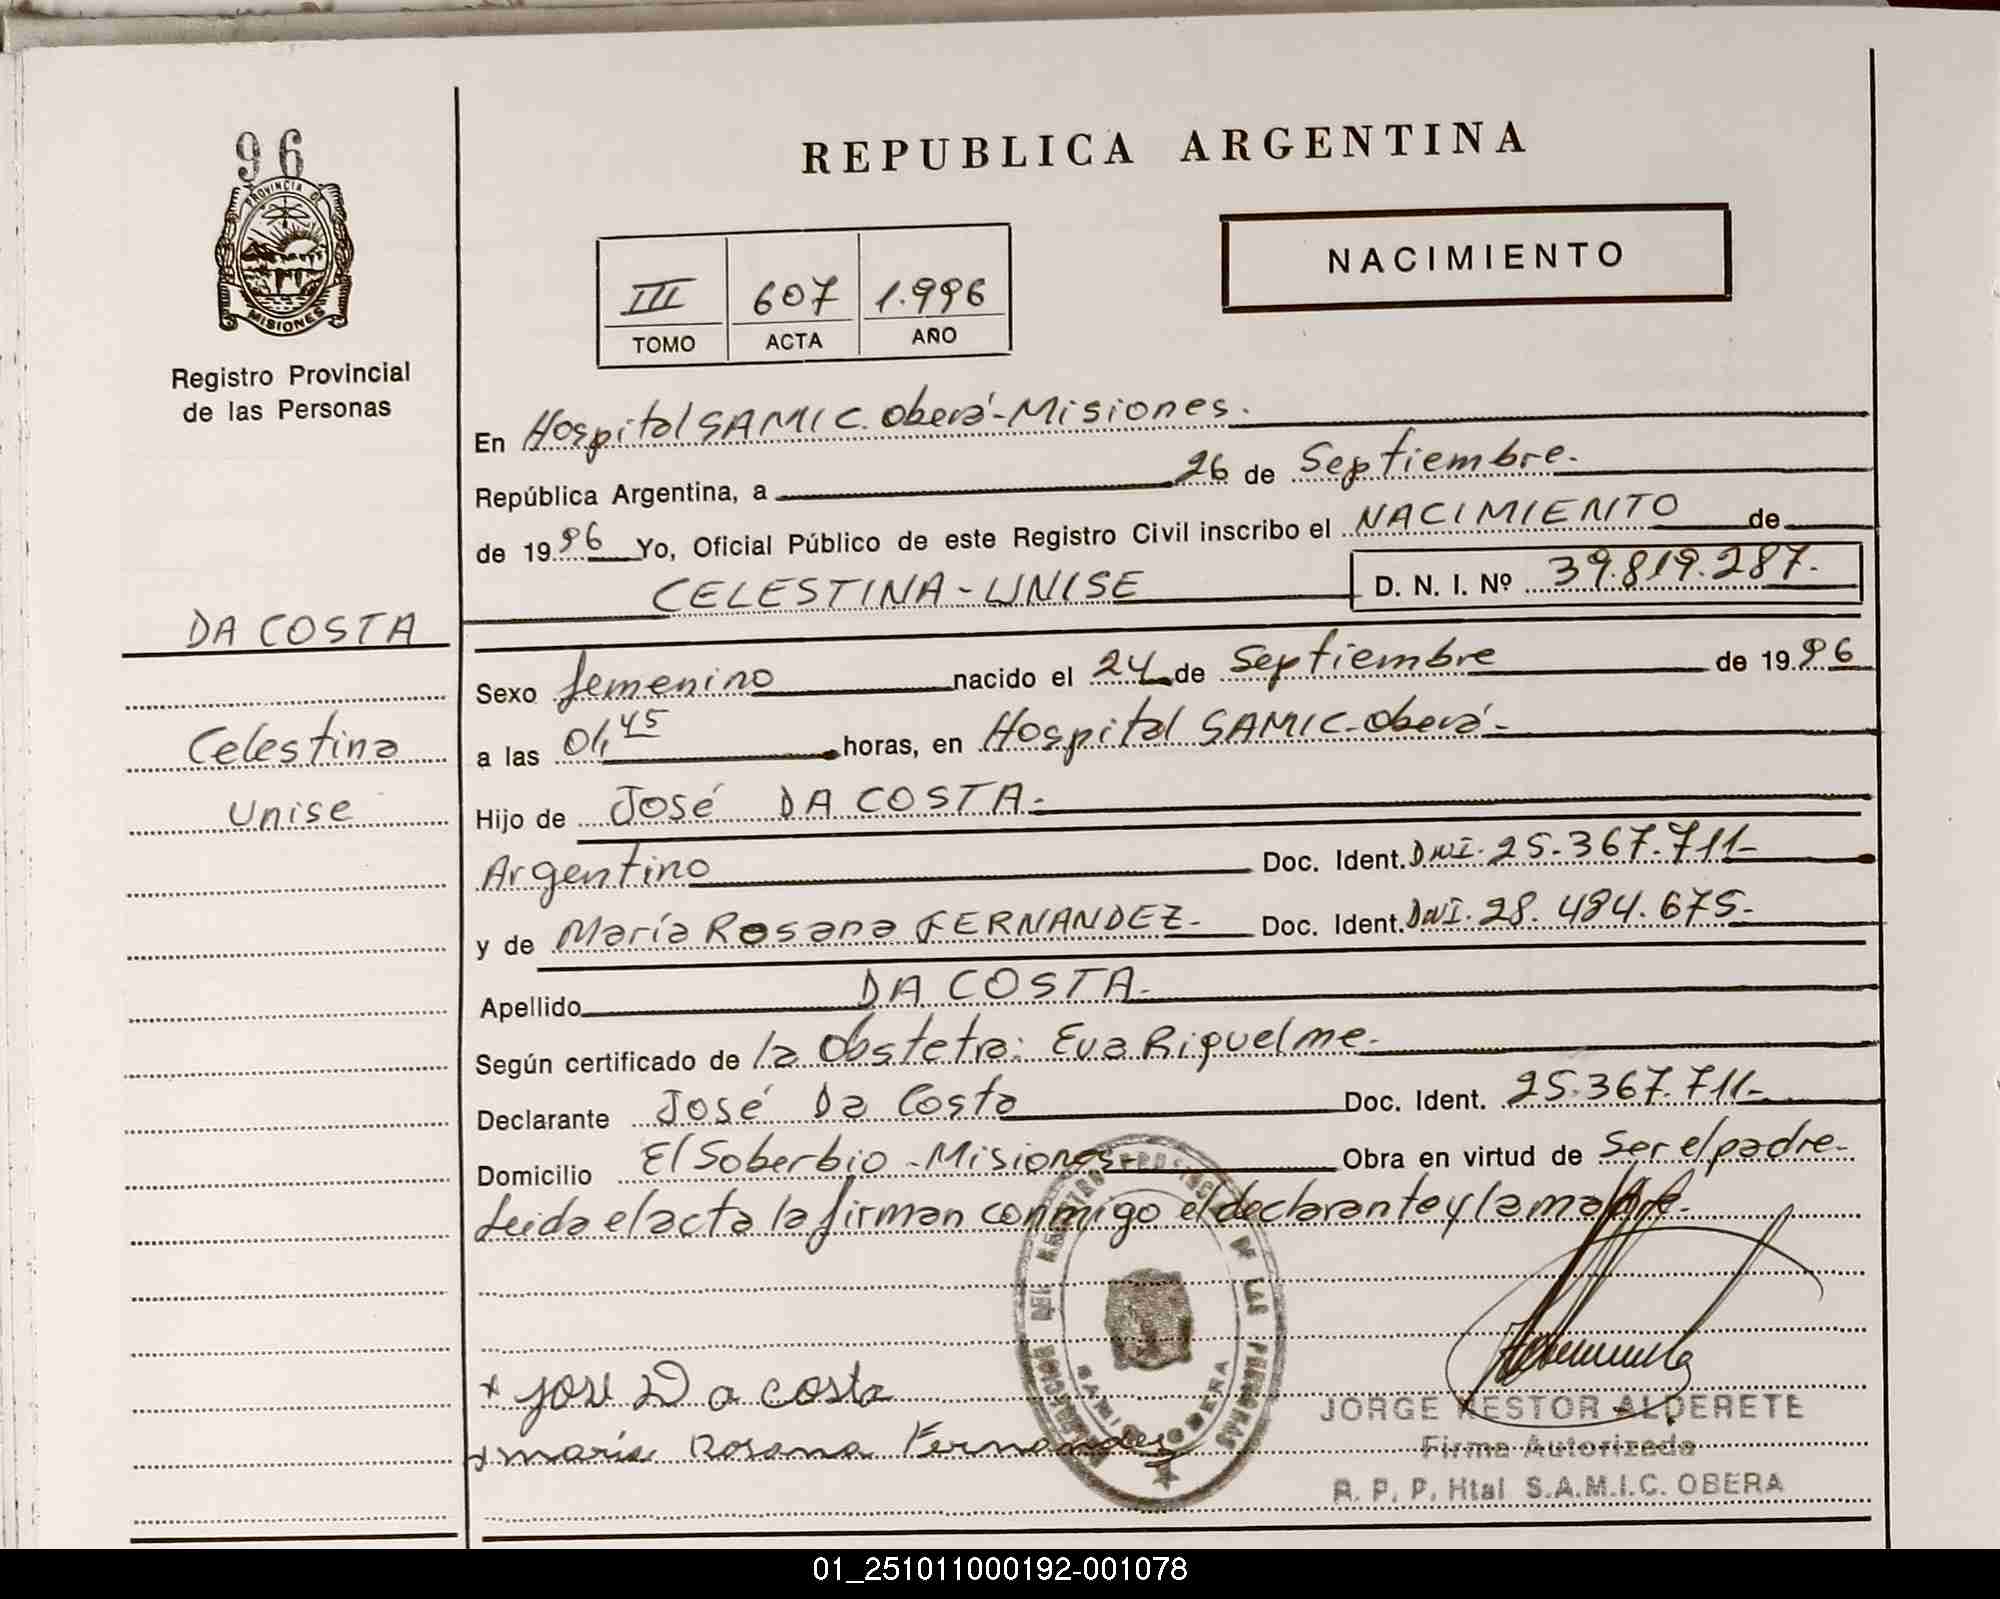 96
PROVINCIA DE
MISIONES
Registro Provincial
de las Personas
DA COSTA
Celestina
Unise
REPUBLICA ARGENTINA
NACIMIENTO
III 607 1.996
TOMO ACTA AÑO
En Hospital SAMIC. Oberá-Misiones.
República Argentina, a 26 de Septiembre.
de 1996 Yo, Oficial Público de este Registro Civil inscribo el NACIMIENTO de
CELESTINA-UNISE D. N. I. Nº 39.819.287.
Sexo femenino nacido el 24 de Septiembre de 1996
a las 01,45 horas, en Hospital SAMIC-Oberá-
Hijo de José DA COSTA-
Argentino Doc. Ident. DNI. 25.367.711-
y de María Rosana FERNANDEZ- Doc. Ident. DNI. 28.484.675-
Apellido DA COSTA-
Según certificado de la Obstetra: Eva Riquelme-
Declarante José Da Costa Doc. Ident. 25.367.711-
Domicilio El Soberbio-Misiones- Obra en virtud de Ser el padre-
Leida el acta la firman conmigo el declarante y la madre.
DE LAS PERSONAS
OBERA
x José Da costa
x maria Rosana Fernandez
JORGE NESTOR ALDERETE
Firma Autorizada
R. P. P. Htal S.A.M.I.C. OBERA
01_251011000192-001078